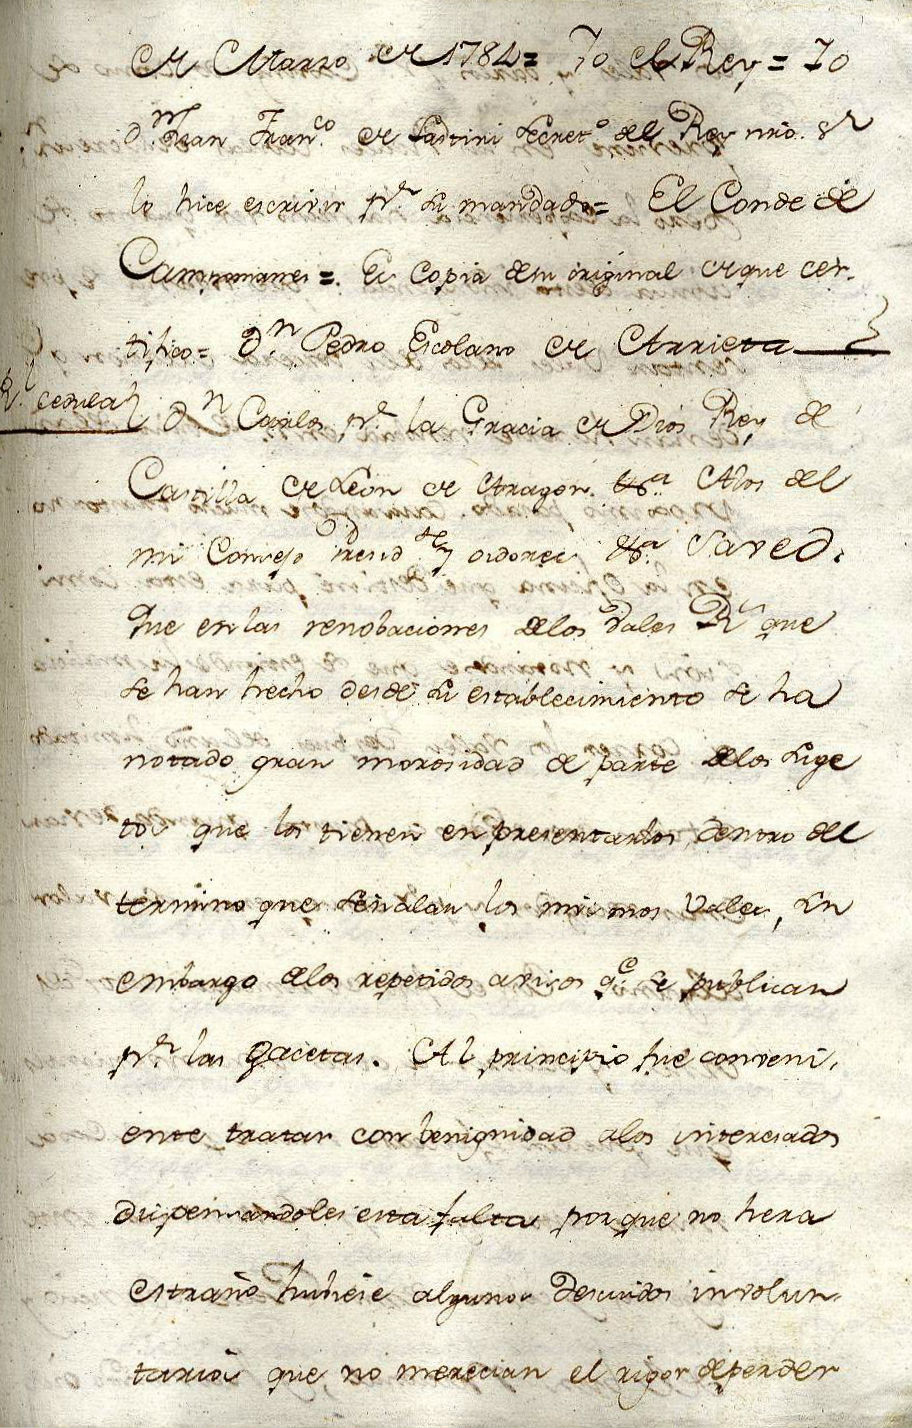 de Marzo de 1784 = Yo el Rey = Yo
dn. Juan Franco. de Lastiri Secreto. del Rey nro. Sr
lo hice escrivir pr. su mandado = El Conde de
Campomanes =. Es copia de su original de que cer-
tifico = Dn. Pedro Escolano de Arrieta
Rl. cedula
Dn Carlos pr. la Gracia de Dios Rey de
Castilla de Leon de Aragon. &a. Alos del
mi Consejo Presidte y oidores &a. Saved.
Que en las renobaciones delos Vales Rs que
se han hecho desde su establecimiento se ha
notado gran morosidad de parte delos suge
tos que los tienen en presentarlos dentro del
termino que señalan los mismos Vales, sin
embargo delos repetidos avisos qe. se publican
pr. las gacetas. Al principio fue conveni-
ente tratar con benignidad alos interesados
dispensandoles esta falta porque no hera
estraño hubiese algunos Descuidos involun-
tarios que no merecian el rigor deperder